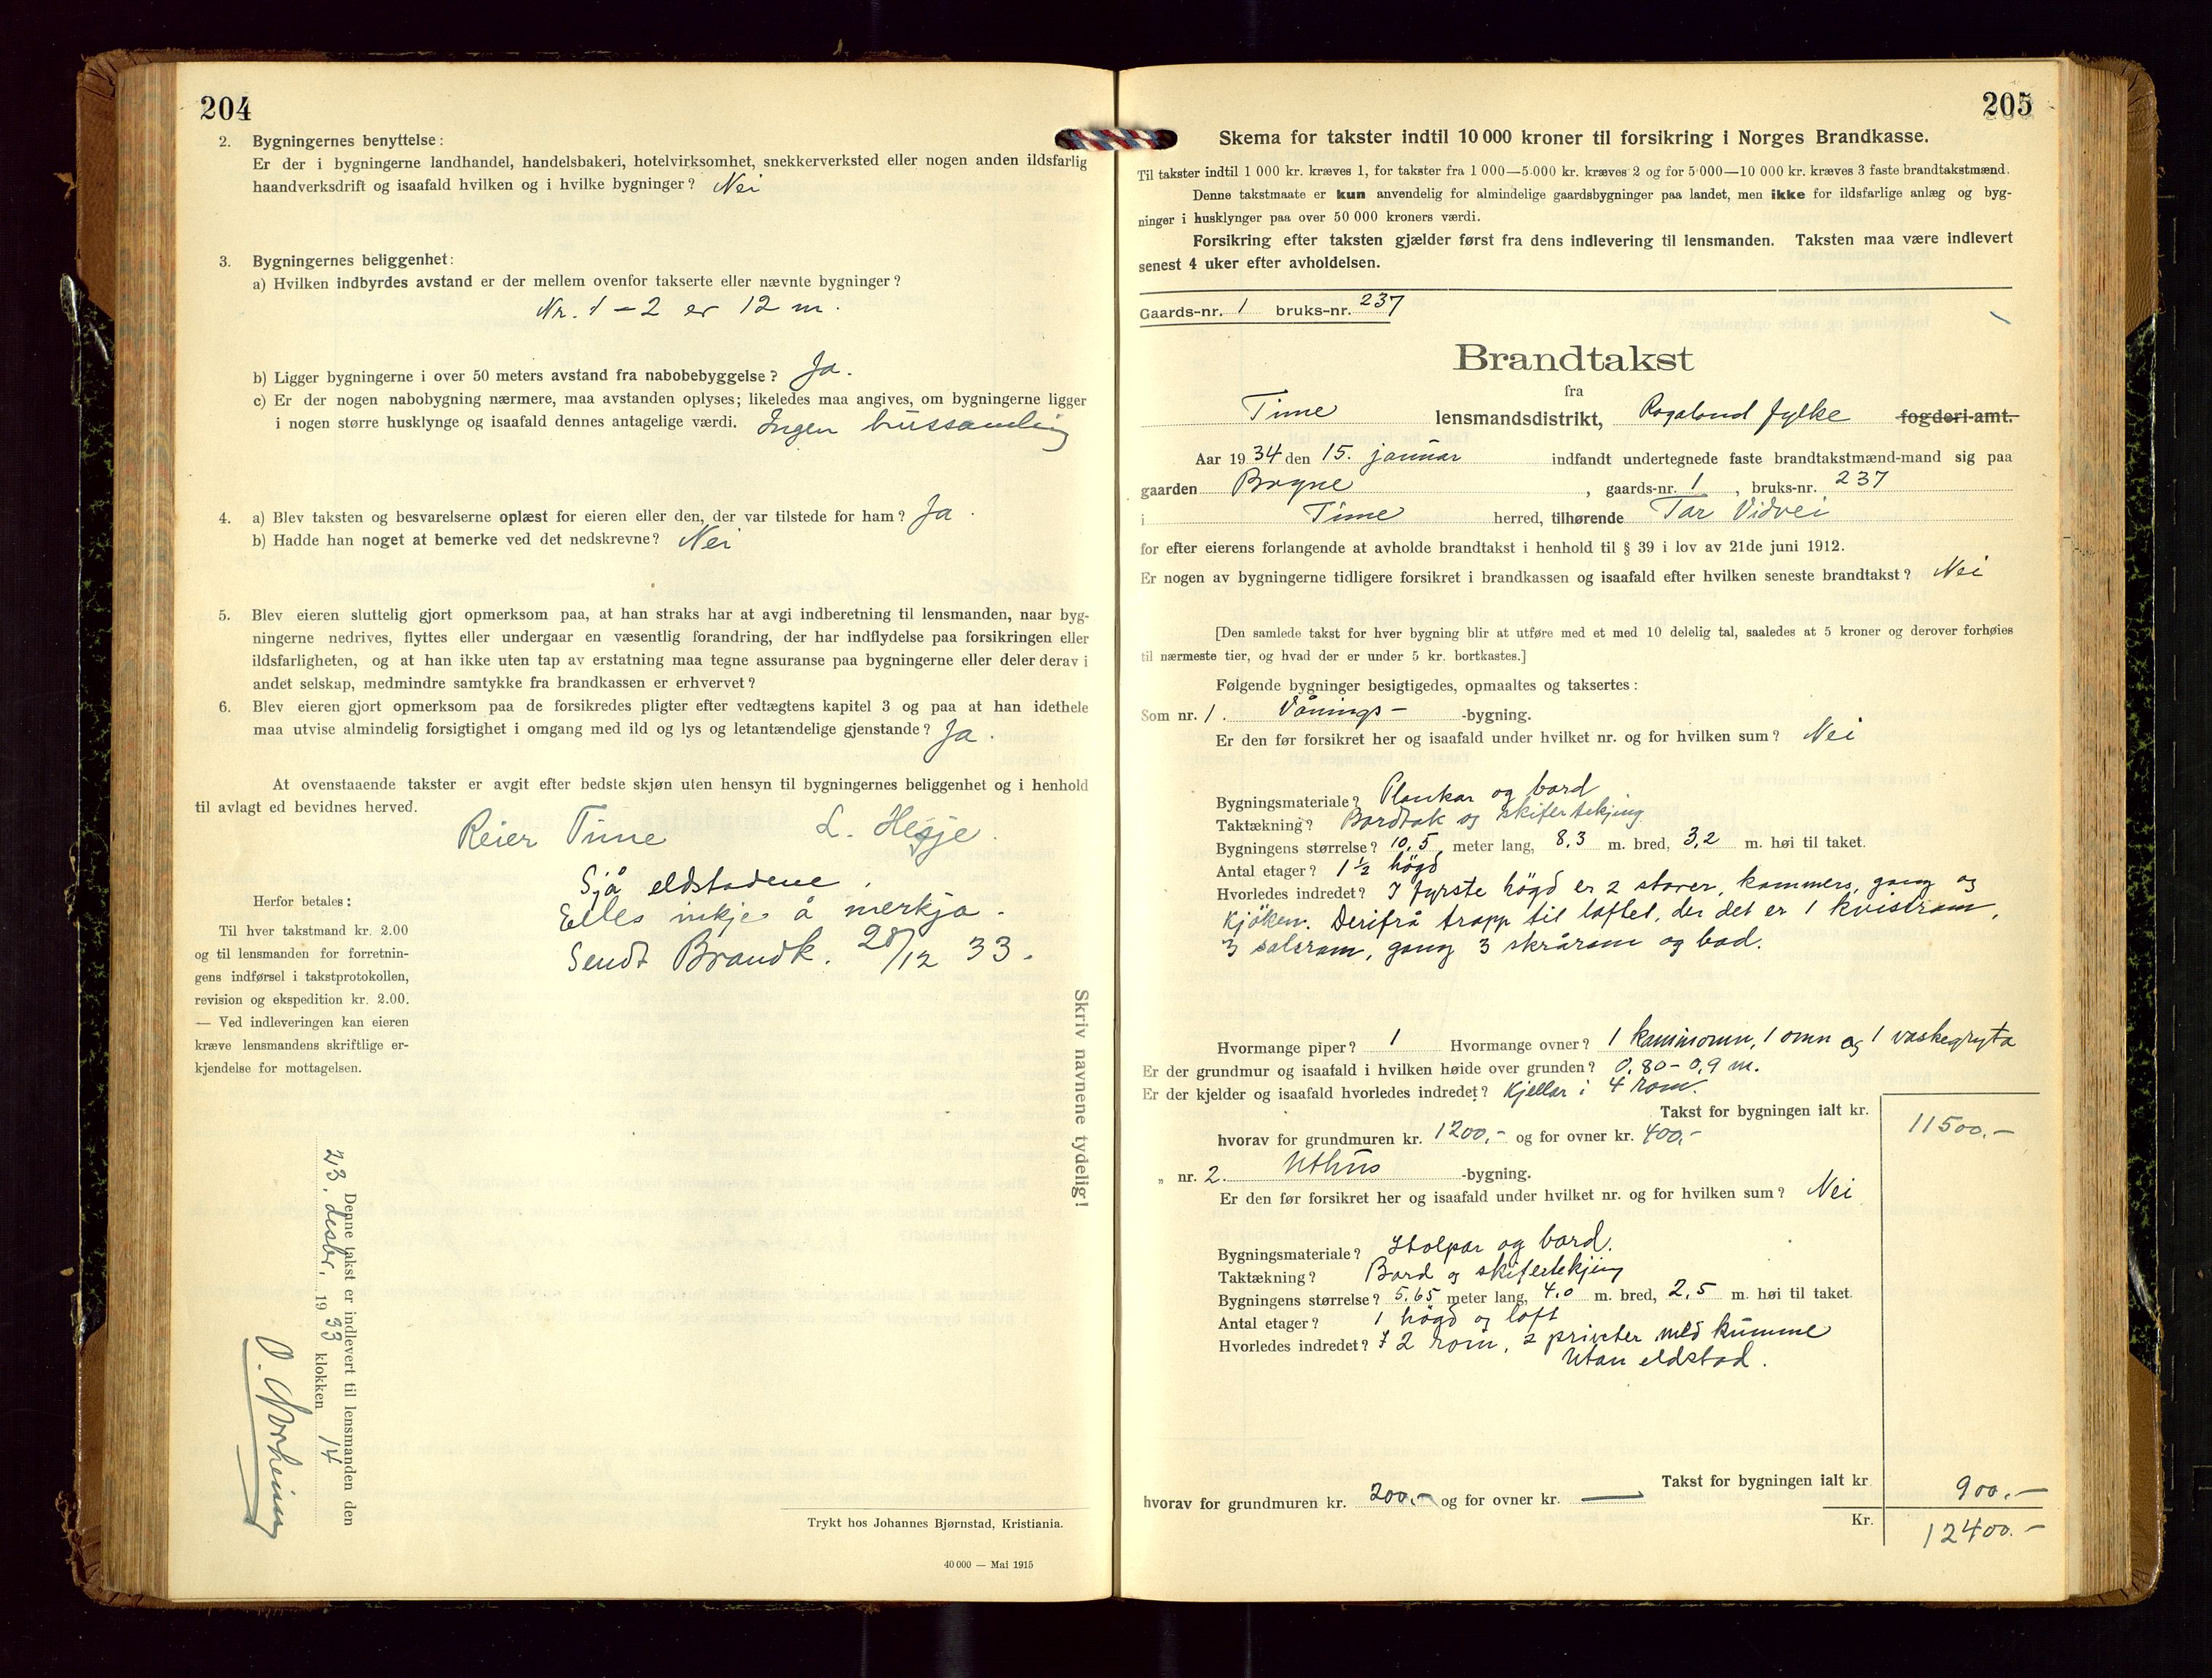 204
2. Bygningernes benyttelse:
Er der i bygningerne landhandel, handelsbakeri, hotelvirksomhet, snekkerverksted eller nogen anden ildsfarlig
haandverksdrift og isaafald hvilken og i hvilke bygninger? Nei
3. Bygningernes beliggenhet:
a) Hvilken indbyrdes avstand er der mellem ovenfor takserte eller nævnte bygninger?
Nr. 1 – 2 er 12 m.
b) Ligger bygningerne i over 50 meters avstand fra nabobebyggelse? Ja.
c) Er der nogen nabobygning nærmere, maa avstanden oplyses; likeledes maa angives, om bygningerne ligger
i nogen større husklynge og isaafald dennes antagelige værdi. Ingen hussamling
4. a) Blev taksten og besvarelserne oplæst for eieren eller den, der var tilstede for ham? Ja.
b) Hadde han noget at bemerke ved det nedskrevne? Nei
5. Blev eieren sluttelig gjort opmerksom paa, at han straks har at avgi indberetning til lensmanden, naar byg-
ningerne nedrives, flyttes eller undergaar en væsentlig forandring, der har indflydelse paa forsikringen eller
ildsfarligheten, og at han ikke uten tap av erstatning maa tegne assuranse paa bygningerne eller deler derav i
andet selskap, medmindre samtykke fra brandkassen er erhvervet?
6. Blev eieren gjort opmerksom paa de forsikredes pligter efter vedtægtens kapitel 3 og paa at han idethele
maa utvise almindelig forsigtighet i omgang med ild og lys og letantændelige gjenstande? Ja.
At ovenstaaende takster er avgit efter bedste skjøn uten hensyn til bygningernes beliggenhet og i henhold
til avlagt ed bevidnes herved.
Reier Time L. Hesje.
Sjå eldstadene.
Elles inkje å merkja.
Sendt Brandk. 28/12 33.
Herfor betales:
Til hver takstmand kr. 2.00
og til lensmanden for forretnin-
gens indførsel i takstprotokollen,
revision og ekspedition kr. 2.00.
— Ved indleveringen kan eieren
kræve lensmandens skriftlige er-
kjendelse for mottagelsen.
Skriv navnene tydelig!
Denne takst er indlevert til lensmanden den
23. desbr. 1933 klokken 14
Trykt hos Johannes Bjørnstad, Kristiania.
40 000 — Mai 1915
205
Skema for takster indtil 10 000 kroner til forsikring i Norges Brandkasse.
Til takster indtil 1 000 kr. kræves 1, for takster fra 1 000—5 000 kr. kræves 2 og for 5 000—10 000 kr. kræves 3 faste brandtakstmænd.
Denne takstmaate er kun anvendelig for almindelige gaardsbygninger paa landet, men ikke for ildsfarlige anlæg og byg-
ninger i husklynger paa over 50 000 kroners værdi.
Forsikring efter taksten gjælder først fra dens indlevering til lensmanden. Taksten maa være indlevert
senest 4 uker efter avholdelsen.
Gaards-nr. 1 bruks-nr. 237
Brandtakst
fra
Time lensmandsdistrikt, Rogaland fylke fogderi-amt.
Aar 1934 den 15. januar indfandt undertegnede faste brandtakstmænd-mand sig paa
gaarden Bryne, gaards-nr. 1, bruks-nr. 237
i Time herred, tilhørende Tor Vidvei
for efter eierens forlangende at avholde brandtakst i henhold til § 39 i lov av 21de juni 1912.
Er nogen av bygningerne tidligere forsikret i brandkassen og isaafald efter hvilken seneste brandtakst? Nei
[Den samlede takst for hver bygning blir at utføre med et med 10 delelig tal, saaledes at 5 kroner og derover forhøies
til nærmeste tier, og hvad der er under 5 kr. bortkastes.]
Følgende bygninger besigtigedes, opmaaltes og taksertes:
Som nr. 1. Vånings- -bygning.
Er den før forsikret her og isaafald under hvilket nr. og for hvilken sum? Nei
Bygningsmateriale? Plankar og bord
Taktækning? Bordtak og skifertekjing
Bygningens størrelse? 10,5 meter lang, 8,3 m. bred, 3,2 m. høi til taket.
Antal etager? 1 ½ högd
Hvorledes indredet? I fyrste högd er 2 stover, kammers, gang og
kjöken. Derifrå trapp til loftet, der det er 1 kvistrom,
3 salsrom, gang 3 skrårom og bad.
Hvormange piper? 1 Hvormange ovner? 1 kaminomn, 1 omn og 1 vaskegryta
Er der grundmur og isaafald i hvilken høide over grunden? 0,80 – 0,9 m.
Er der kjelder og isaafald hvorledes indredet? Kjellar i 4 rom.
Takst for bygningen ialt kr. 11500,-
hvorav for grundmuren kr. 1200,- og for ovner kr. 400,-
„ nr. 2. Uthus -bygning.
Er den før forsikret her og isaafald under hvilket nr. og for hvilken sum? Nei
Bygningsmateriale? Stolpar og bord.
Taktækning? Bord og skifertekjing
Bygningens størrelse? 5,65 meter lang, 4,0 m. bred, 2,5 m. høi til taket.
Antal etager? 1 högd og loft
Hvorledes indredet? I 2 rom, 2 priveter med kumme
Utan eldstad.
Takst for bygningen ialt kr 900,-
hvorav for grundmuren kr. 200,- og for ovner kr. —
Kr. 12400.-